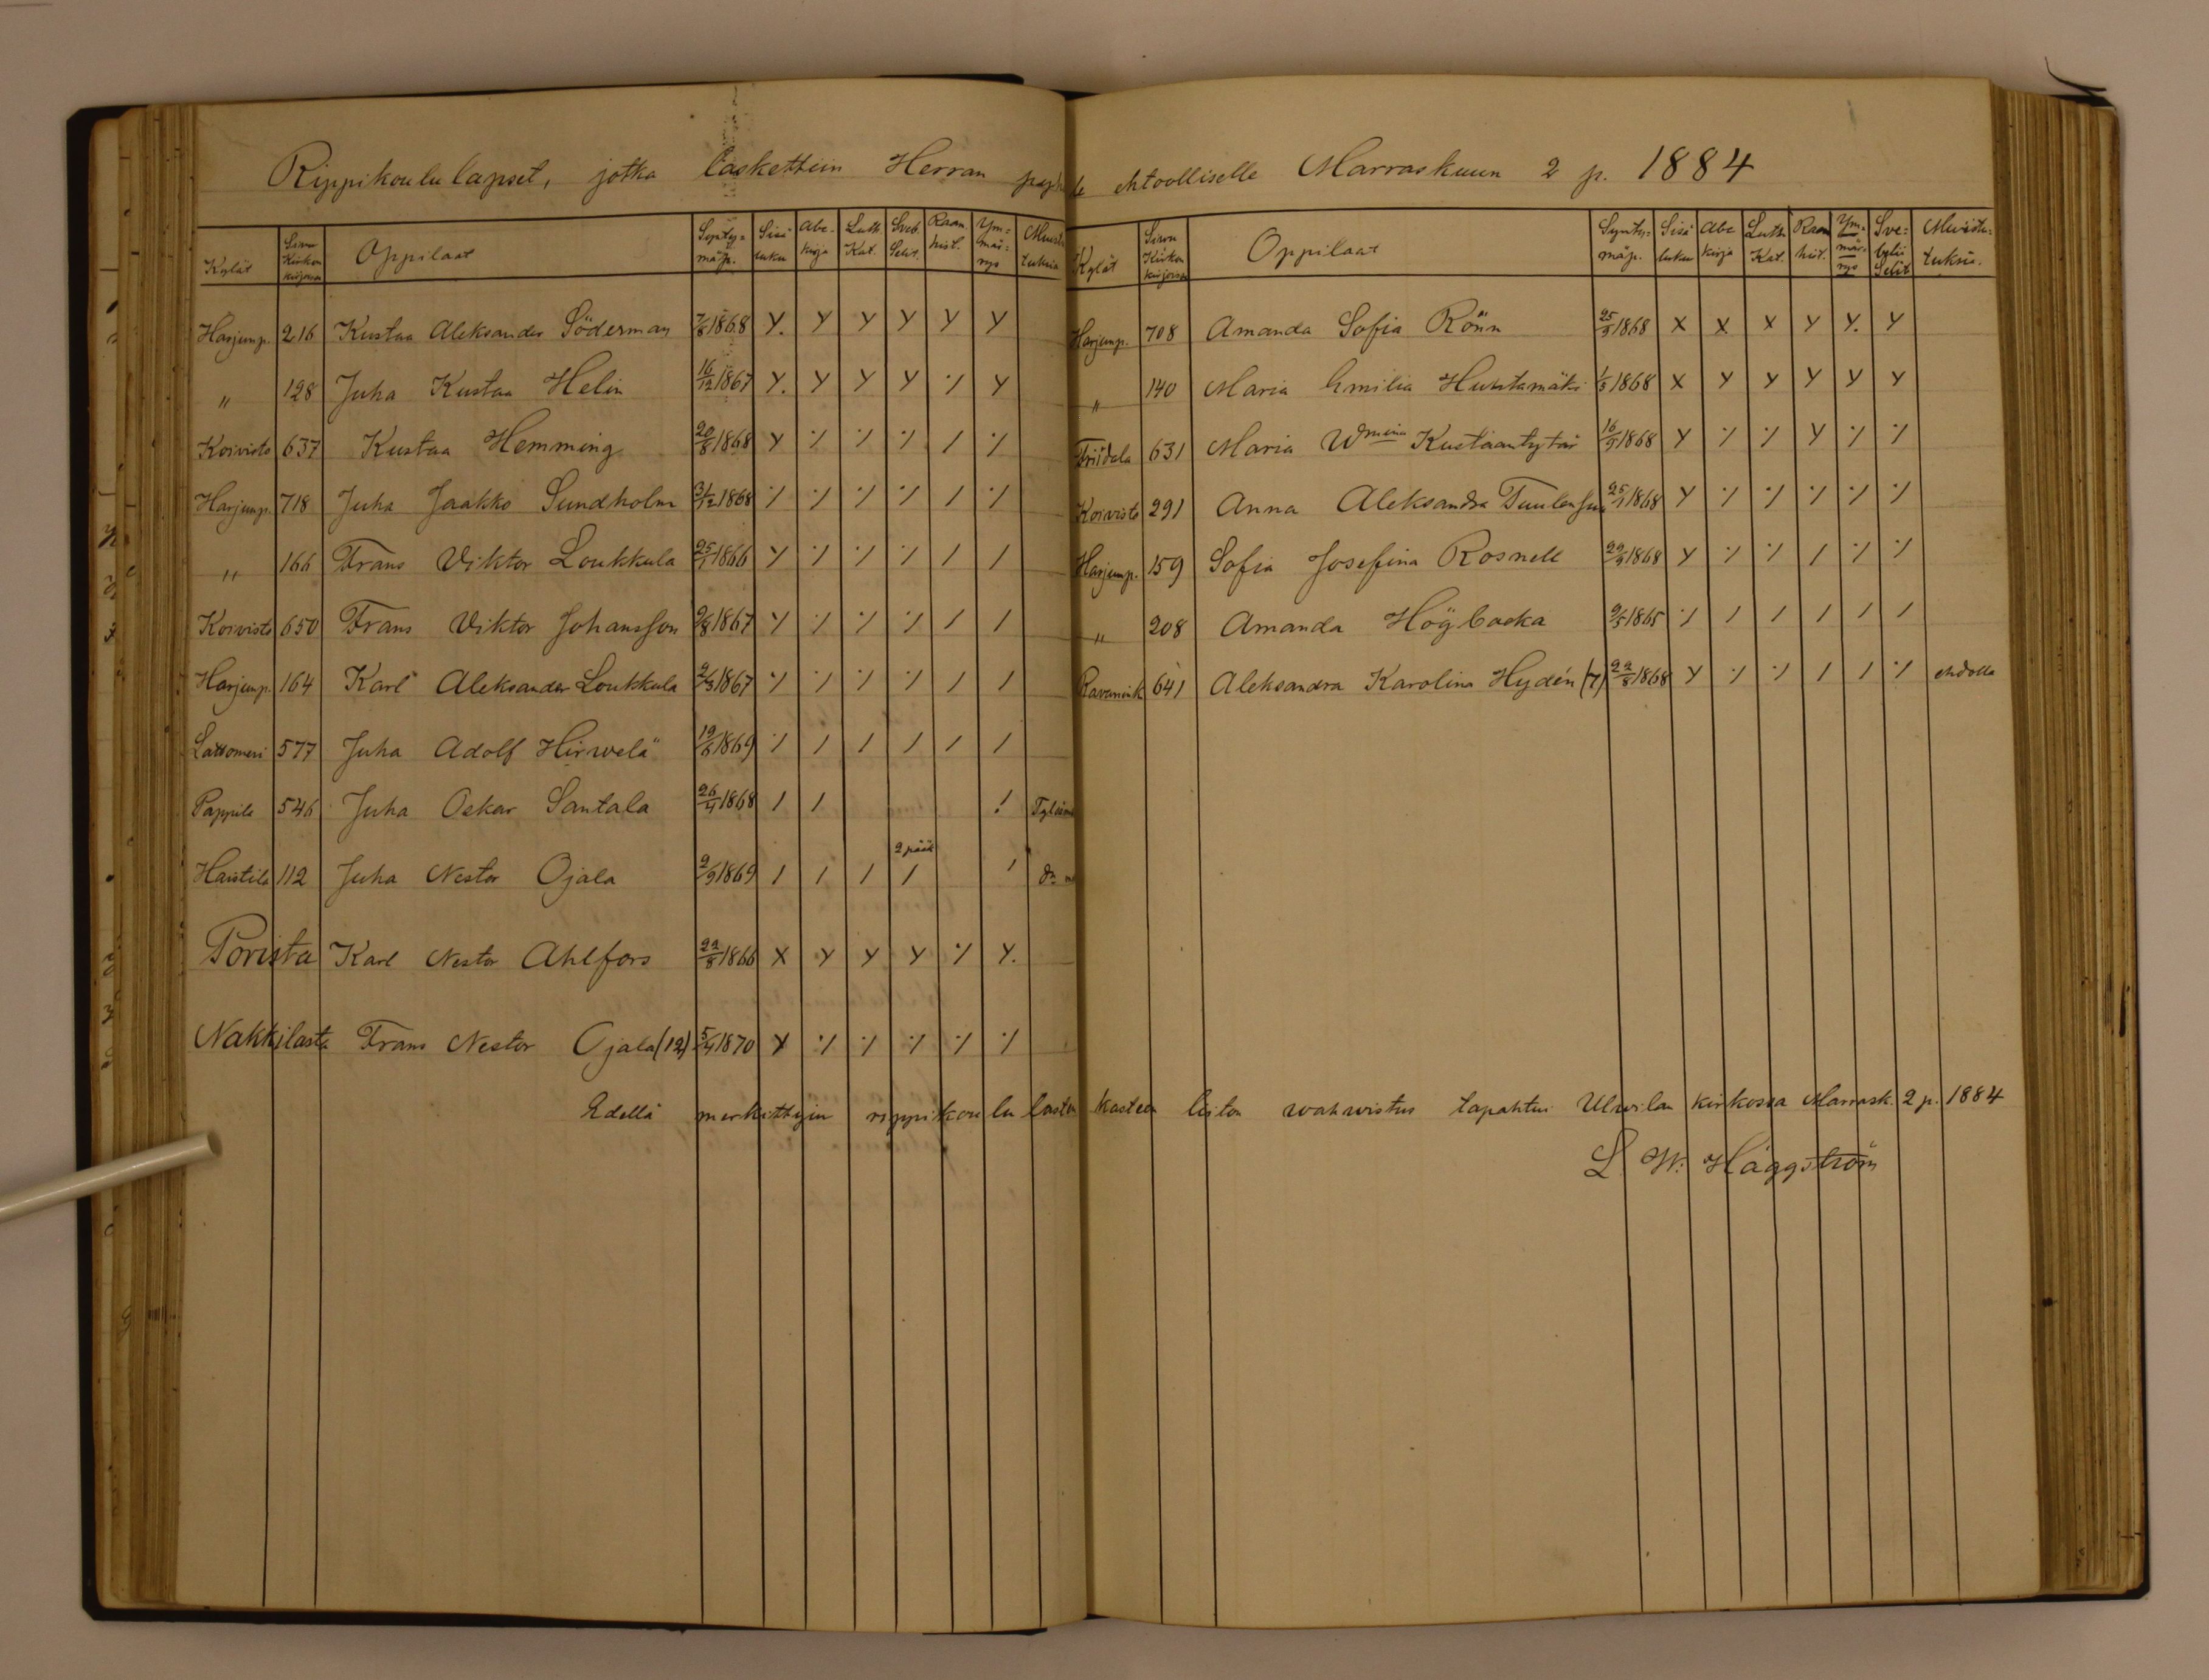 Rippikoulu lapset, jotka laskettiin Herran pyhälle ehtoolliselle Marraskuun 2 p. 1884
Kylät Sivu Kirkon kirjossa Oppilaat Synty-mäp. Sisä luku Abc-kirja Luth. Kat. Sveb. Selit. Raam. hist. Ym-mär-rys Muistu-tuksia
Harjunp. 216 Kustaa Aleksander Söderman 7/8 1868 Y. Y Y Y Y Y
" 128 Juha Kustaa Helin 16/12 1867 Y. Y Y Y ·/ Y
Koivisto 637 Kustaa Hemming 20/8 1868 Y ·/ ·/ ·/ / ·/
Harjunp. 718 Juha Jaakko Sundholm 31/12 1868 ·/ ·/ ·/ ·/ / ·/
" 166 Frans Viktor Loukkula 25/1 1866 Y ·/ ·/ ·/ / /
Koivisto 650 Frans Viktor Johansson 9/8 1867 Y ·/ ·/ ·/ / /
Harjunp. 164 Karl Aleksander Loukkula 2/3 1867 ·/ ·/ ·/ ·/ / /
Lattomeri 577 Juha Adolf Hirwelä 19/6 1869 ·/ / / / / /
Pappila 546 Juha Oskar Santala 26/4 1868 / / /
2 pääk
Haistila 112 Juha Nestor Ojala 2/9 1869 / / / / /
Porista Karl Nestor Ahlfors 22/8 1866 X Y Y Y ·/ Y.
Nakkilasta Frans Nestor Ojala (12) 5/4 1870 Y ·/ ·/ ·/ ·/ ·/
Kylät Sivu Kirkon kirjossa Oppilaat Synty-mäp. Sisä luku Abc kirja Luth. Kat. Raam hist. Ym-mär-rys Sve-bylii Selit Muistu-tuksia.
Harjunp. 708 Amanda Sofia Rönn 25/5 1868 X X X Y Y. Y
" 140 Maria Emilia Huhtamäki 1/3 1868 X Y Y Y Y Y
Friidala 631 Maria Wmiina Kustaantytär 16/9 1868 Y ·/ ·/ Y ·/ ·/
Koivisto 291 Anna Aleksandra Tuulensuu 25/1 1868 Y ·/ ·/ ·/ ·/ ·/
Harjunp. 159 Sofia Josefina Rosnell 29/9 1868 Y ·/ ·/ / ·/ ·/
" 208 Amanda Högbacka 9/5 1865 ·/ / / / / /
Ravanink 641 Aleksandra Karolina Hydén (7) 22/8 1868 Y ·/ ·/ / / ·/ ehdolla
Edellä merkittyin rippikoulu lasten kasteen liiton wahwistus tapahtui Ulwilan kirkossa Marrask. 2 p. 1884
L. W. Häggström